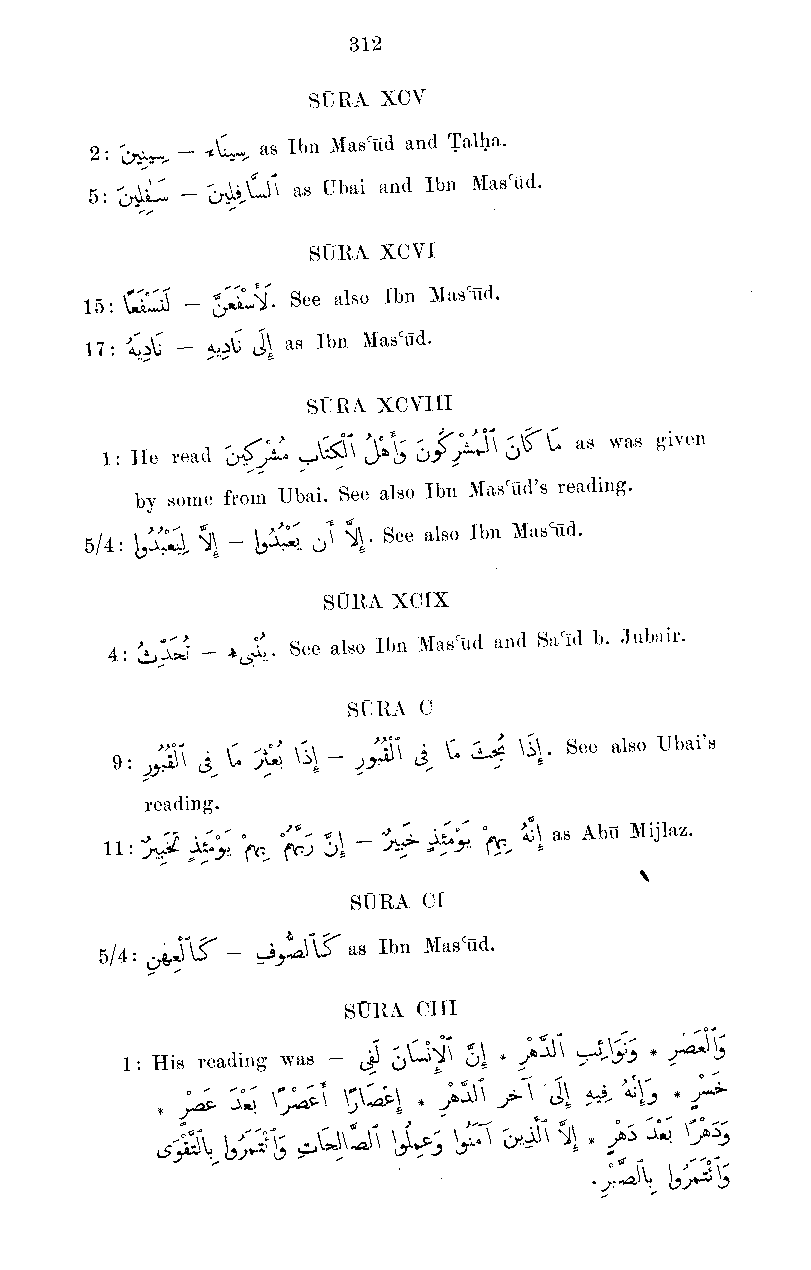 312
SŪRA XCV
2: سِينِينَ — سِينَاءَ as Ibn Masʿūd and Ṭalḥa.
5: سَفِلِينَ — ٱلسَّافِلِينَ as Ubai and Ibn Masʿūd.
SŪRA XCVI
15: لَنَسْفَعًا — لَأَسْفَعَنَّ. See also Ibn Masʿūd.
17: نَادِيَهُ — إِلَى نَادِيهِ as Ibn Masʿūd.
SŪRA XCVIII
1: He read مَا كَانَ ٱلْمُشْرِكُونَ وَأَهْلُ ٱلْكِتَابِ مُشْرِكِينَ as was given
by some from Ubai. See also Ibn Masʿūd's reading.
5/4: إِلَّا لِيَعْبُدُوا — إِلَّا أَن يَعْبُدُوا. See also Ibn Masʿūd.
SŪRA XCIX
4: تُحَدِّثُ — يُنْبِىء. See also Ibn Masʿūd and Saʿīd b. Jubair.
SŪRA C
9: إِذَا بُعْثِرَ مَا فِى ٱلْقُبُورِ — إِذَا بُحِثَ مَا فِى ٱلْقُبُورِ. See also Ubai's
reading.
11: إِنَّ رَبَّهُمْ بِهِمْ يَوْمَئِذٍ لَخَبِيرٌ — إِنَّهُ بِهِمْ يَوْمَئِذٍ خَبِيرٌ as Abū Mijlaz.
SŪRA CI
5/4: كَٱلْعِهْنِ — كَٱلصُّوفِ as Ibn Masʿūd.
SŪRA CIII
1: His reading was — وَٱلْعَصْرِ * وَنَوَائِبِ ٱلدَّهْرِ * إِنَّ ٱلْإِنْسَانَ لَفِى
خُسْرٍ * وَإِنَّهُ فِيهِ إِلَى آخِرِ ٱلدَّهْرِ * إِعْصَارًا أَعْصُرًا بَعْدَ عَصْرٍ *
وَدَهْرًا بَعْدَ دَهْرٍ * إِلَّا ٱلَّذِينَ آمَنُوا وَعَمِلُوا ٱلصَّالِحَاتِ وَٱئْتَمَرُوا بِٱلتَّقْوَى
وَٱئْتَمَرُوا بِٱلصَّبْرِ.